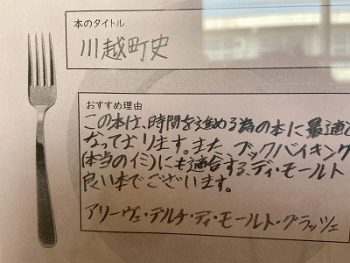 本のタイトル
川越町史
おすすめ理由
この本は、時間を進める為の本に最適と
なっております。また、ブックバイキング
(本当のイミ)にも適合する、ディ・モールト
良い本でございます。
アリーヴェ・デルチ・ディ・モールト・グラッツェ